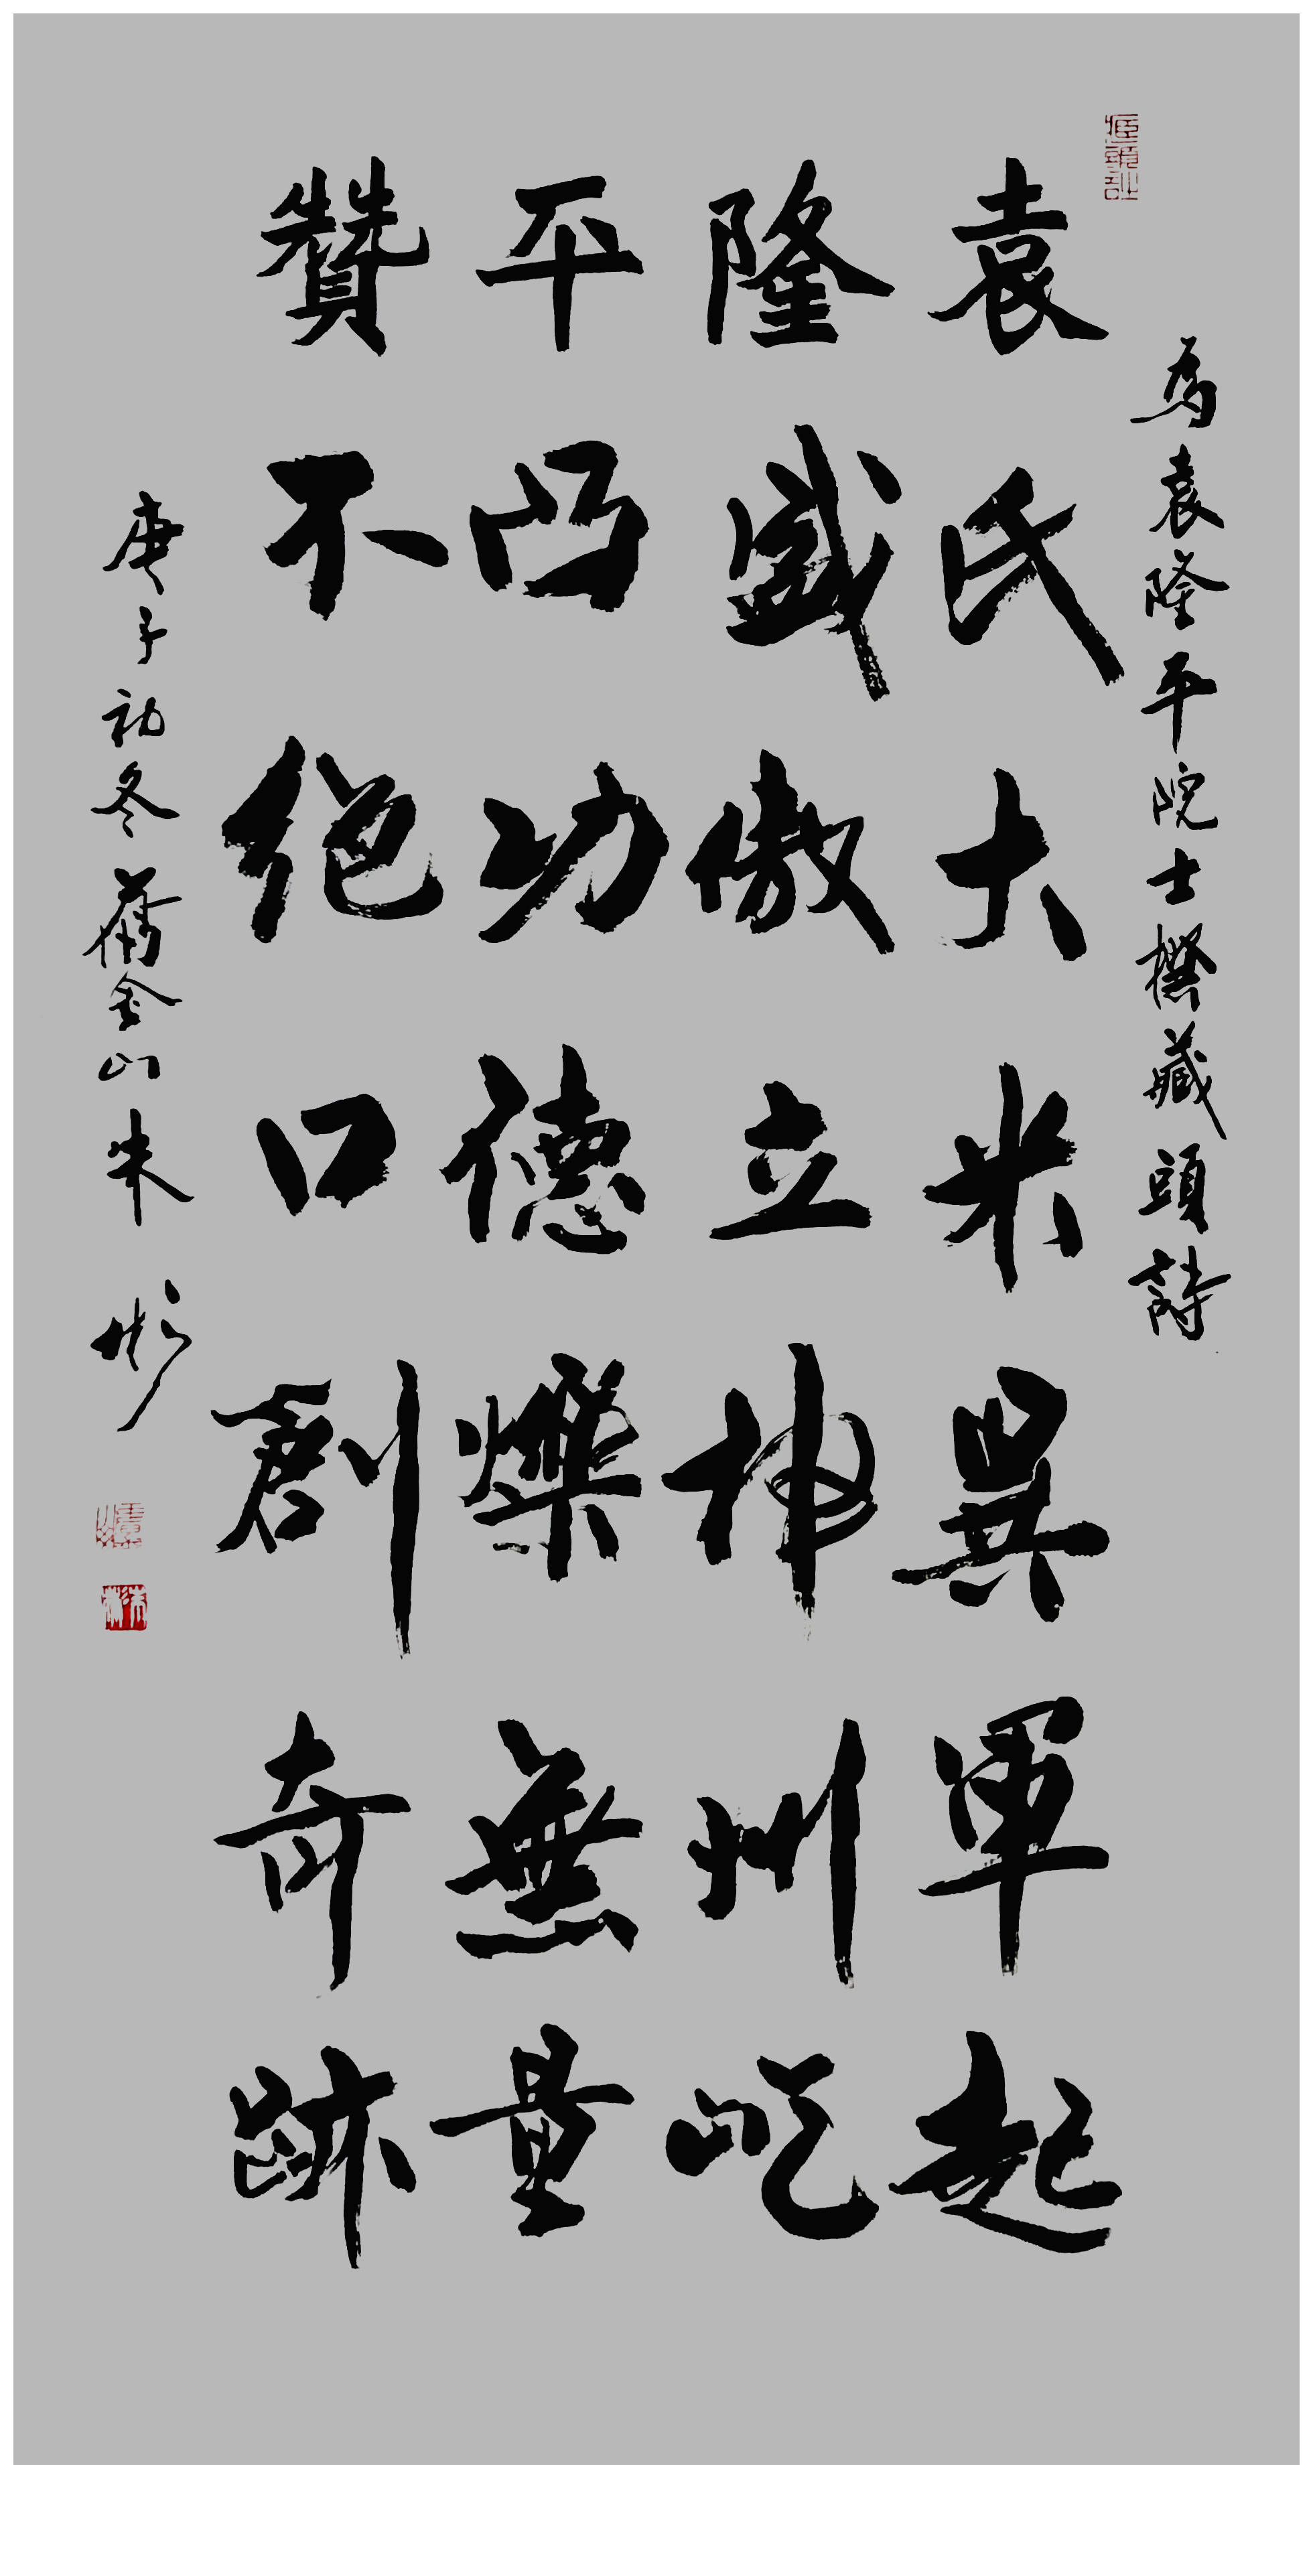 為袁隆平院士撰藏頭詩
袁氏大米異軍起
隆盛傲立神州屹
平凸功德爍無量
贊不絕口創奇跡
庚子初冬蕎金山朱彬